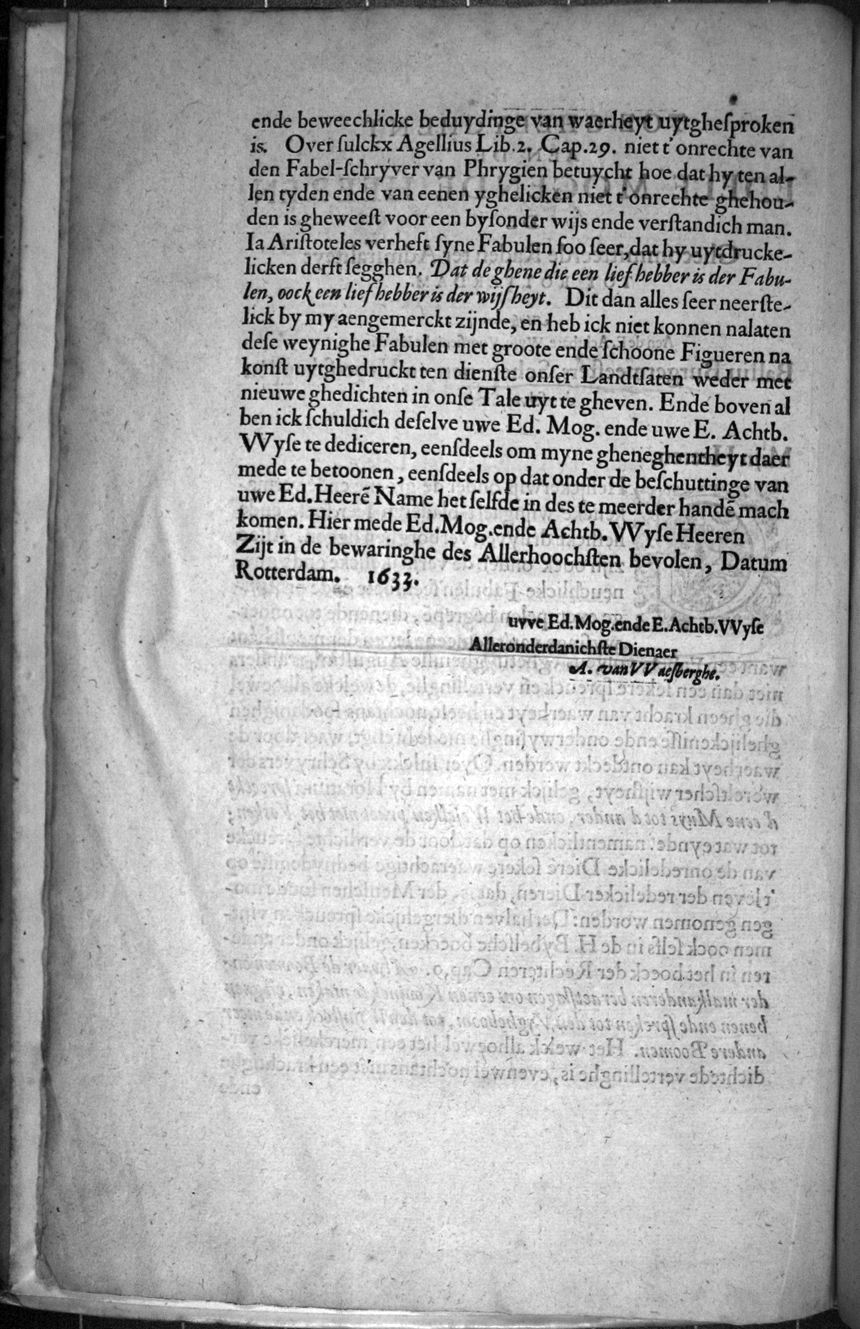 ende beweechlicke beduydinge van waerheyt uytgheſproken
is. Over ſulckx Agellius Lib.2. Cap.29. niet t'onrechte van
den Fabel-ſchryver van Phrygien betuycht hoe dat hy ten al-
len tyden ende van eenen yghelicken niet t'onrechte ghehou-
den is gheweeſt voor een byſonder wijs ende verſtandich man.
Ia Ariſtoteles verheft ſyne Fabulen ſoo ſeer, dat hy uytdrucke-
licken derft ſegghen. Dat de ghene die een liefhebber is der Fabu-
len, oock een liefhebber is der wijſheyt. Dit dan alles ſeer neerſte-
lick by my aengemerckt zijnde, en heb ick niet konnen nalaten
deſe weynighe Fabulen met groote ende ſchoone Figueren na
konſt uytghedruckt ten dienſte onſer Landtſaten weder met
nieuwe ghedichten in onſe Tale uyt te gheven. Ende boven al
ben ick ſchuldich deſelve uwe Ed. Mog. ende uwe E. Achtb.
VVyſe te dediceren, eenſdeels om myne gheneghentheyt daer
mede te betoonen, eenſdeels op dat onder de beſchuttinge van
uwe Ed. Heerē Name het ſelfde in des te meerder handē mach
komen. Hier mede Ed. Mog. ende Achtb. VVyſe Heeren
Zijt in de bewaringhe des Allerhoochſten bevolen, Datum
Rotterdam. 1633.
uvve Ed. Mog. ende E. Achtb. VVyſe
Alleronderdanichſte Dienaer
A. van VVaeſberghe.